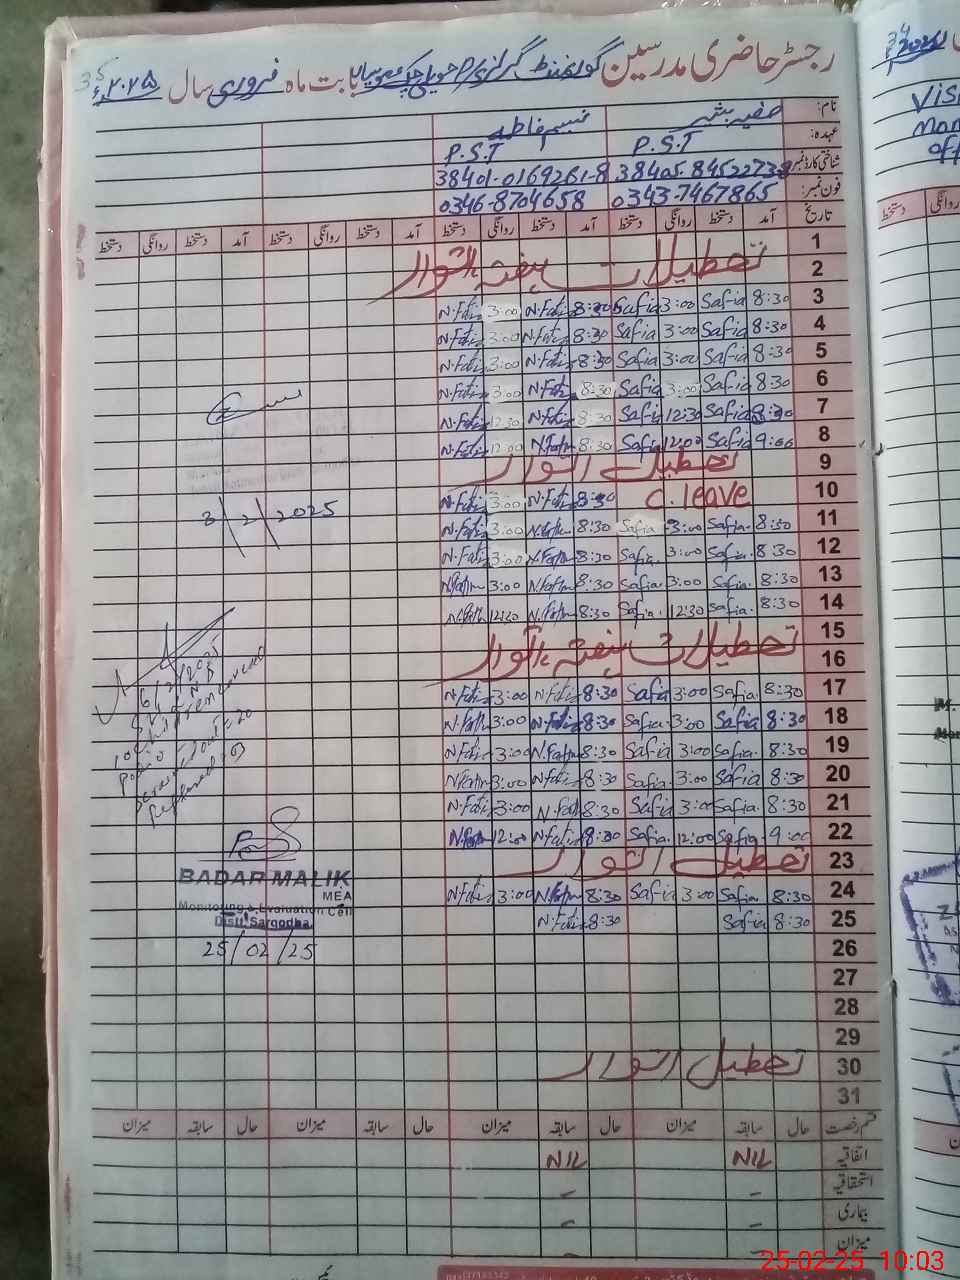 رجسٹر حاضری مدرسین گورنمنٹ گرلز بابت ماہ فروری سال ۲۰۲۵ء
نام: صفیہ بشیر نسیم فاطمہ
عہدہ: P.S.T P.S.T
شناختی کارڈ نمبر 38401-0169261-8
فون نمبر: 0343-7467865 0346-8704658
تاریخ آمد دستخط روانگی دستخط آمد دستخط روانگی دستخط آمد دستخط روانگی دستخط آمد دستخط روانگی دستخط
1
تعطیلات ہفتہ، اتوار
2
N.Fati 3:00 N.Fati 8:30 Safia 3:00 Safia 8:30 3
N.Fati 3:00 N.Fati 8:30 Safia 3:00 Safia 8:30 4
N.Fati 3:00 N.Fati 8:30 Safia 3:00 Safia 8:30 5
N.Fati 3:00 N.Fati 8:30 Safia 3:00 Safia 8:30 6
N.Fati 12:30 N.Fati 8:30 Safia 12:30 Safia 8:30 7
N.Fati 12:00 N.Fatm 8:30 Safia 12:00 Safia 9:00 8
تعطیل اتوار 9
N.Fati 3:00 N.Fati 8:30 C.leave 10
N.Fati 3:00 N.Fatm 8:30 Safia 3:00 Safia 8:30 11
N.Fati 3:00 N.Fatm 8:30 Safia 3:00 Safia 8:30 12
N.Fatm 3:00 N.Fatm 8:30 Safia 3:00 Safia 8:30 13
N.Fatm 12:30 N.Fatm 8:30 Safia 12:30 Safia 8:30 14
15
تعطیلات ہفتہ، اتوار
16
N.Fati 3:00 N.Fati 8:30 Safia 3:00 Safia 8:30 17
N.Fatm 3:00 N.Fati 8:30 Safia 3:00 Safia 8:30 18
N.Fatm 3:00 N.Fatm 8:30 Safia 3:00 Safia 8:30 19
N.Fatm 3:00 N.Fati 8:30 Safia 3:00 Safia 8:30 20
N.Fati 3:00 N.Fati 8:30 Safia 3:00 Safia 8:30 21
N.Fatm 12:00 N.Fati 8:30 Safia 12:00 Safia 9:00 22
تعطیل اتوار 23
N.Fati 3:00 N.Fatm 8:30 Safia 3:00 Safia 8:30 24
N.Fati 8:30 Safia 8:30 25
26
27
28
29
تعطیل اتوار 30
31
3/2/2025
BADAR MALIK
MEA
Monitoring & Evaluation Cell
Distt. Sargodha
25/02/25
قسم رخصت حال سابقہ میزان حال سابقہ میزان حال سابقہ میزان حال سابقہ میزان
اتفاقیہ NIL NIL
استحقاقیہ - -
بیماری - -
میزان - -
دستخط روانگی
25-02-25 10:03